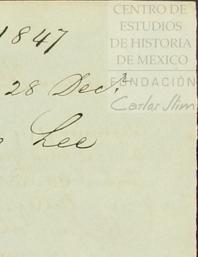 CENTRO DE
ESTUDIOS
DE HISTORIA
DE MEXICO
FUNDACIÓN
Carlos Slim
1847
28 Dec.r
Lee